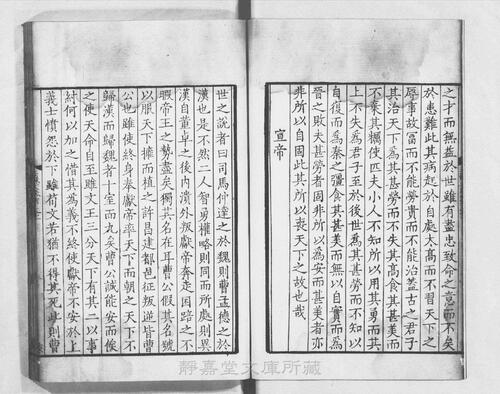 之才而無益於世雖有盡忠致命之意而不矣
於患難此其病起於自處太高而不習天下之
辱事故富而不能勞貴而不能治蓋古之君子
其治天下為其甚勞而不失其高食其甚美而
不棄其糲使匹夫小人不知所以用其勇而其
上不失為君子至於後世為其甚勞而不知以
自復而為秦之彊食其甚美而無以自實而為
晉之敗夫甚勞者固非所以為安而甚美者亦
非所以自固此其所以喪天下之故也哉
宣帝
世之說者曰司馬仲達之於魏則曹孟德之於
漢也是不然二人智勇權略則同而所處則異
漢自董卓之後內潰外叛獻帝奔走困路之不
暇帝王之勢盡矣獨其名在耳曹公假其名號
以服天下擁而植之許昌建都邑征叛逆皆曹
公也雖使終身奉獻帝率天下而朝之天下不
歸漢而歸魏者十室而九矣曹公誠能安而俟
之使天命自至雖文王三分天下有其二以事
紂何以加之惜其為義不終使獻帝不安於上
義士憤怨於下雖荀文若猶不得其死此則曹
靜嘉堂文庫所藏